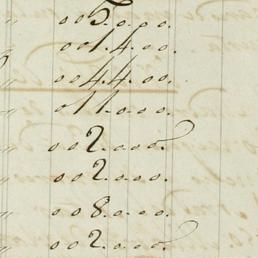 005.000.
001.400.
004.400.
011.000.
002.000.
002.000.
008.000.
002.000.